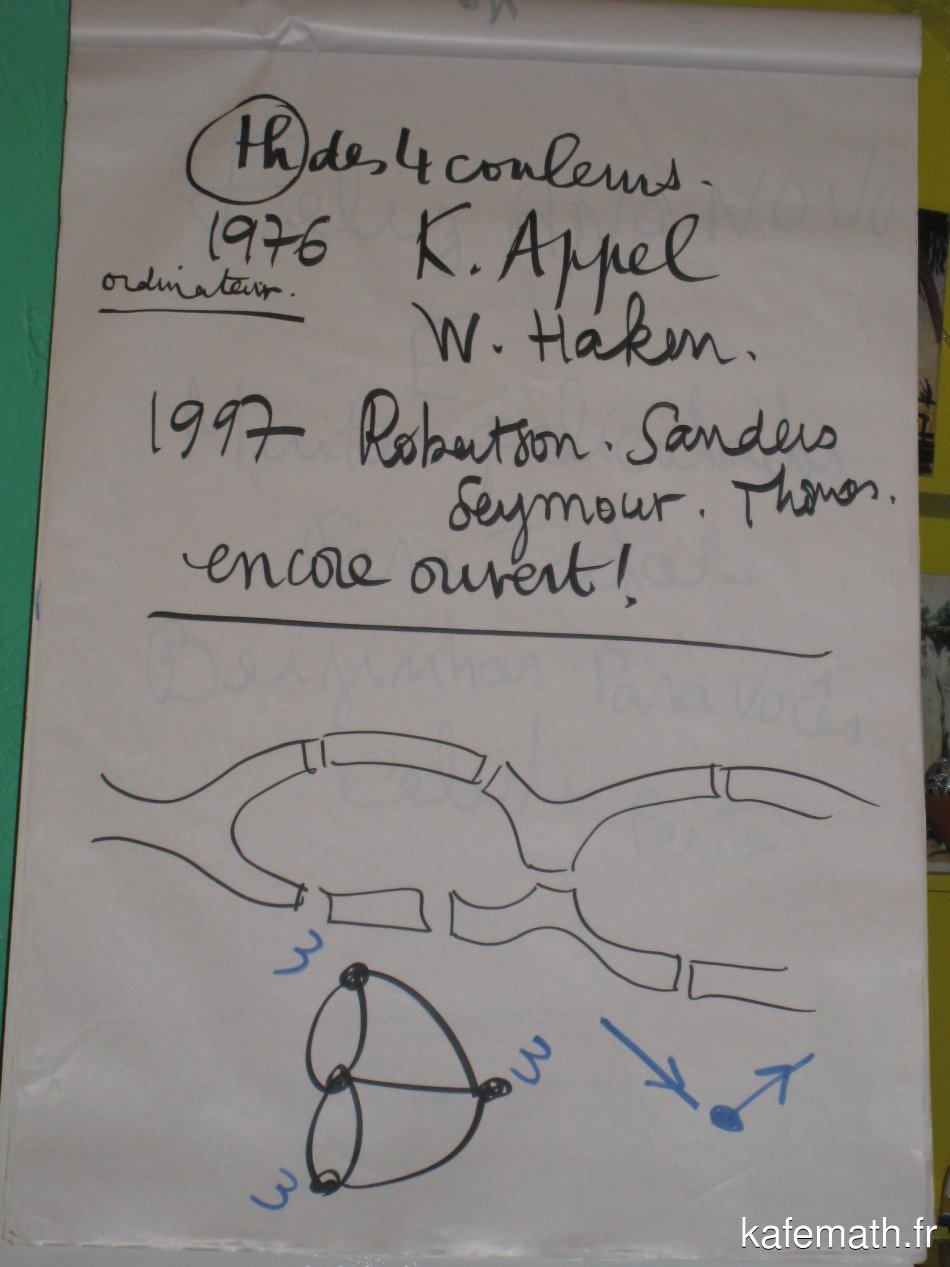 th des 4 couleurs.
1976 K. Appel
ordinateur.
W. Haken.
1997 Robertson. Sanders
Seymour. Thomas.
encore ouvert!
3
3
3
kafemath.fr